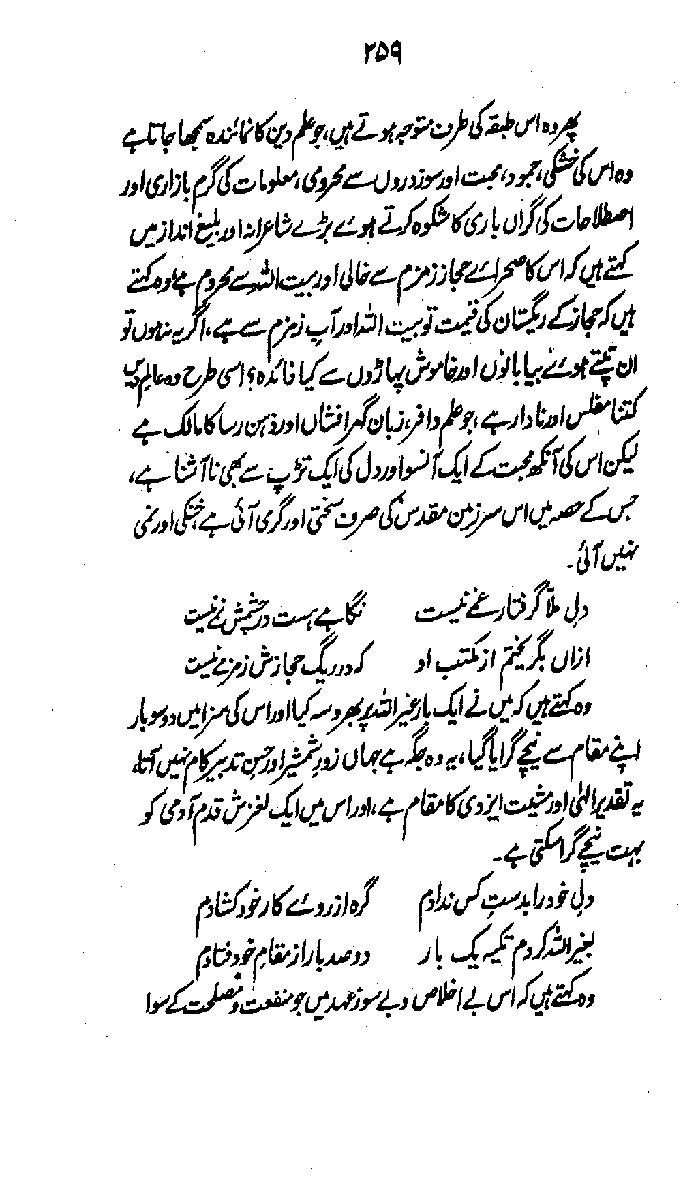 ۲۵۹
پھر وہ اس طبقہ کی طرف متوجہ ہوتے ہیں، جو علم دین کا نمائندہ سمجھا جاتا ہے
وہ اس کی خشکی، جمود، محبت اور سوز دروں سے محرومی، معلومات کی گرم بازاری اور
اصطلاحات کی گراں باری کا شکوہ کرتے ہوئے بڑے شاعرانہ اور بلیغ انداز میں
کہتے ہیں کہ اس کا صحرائے حجاز زمزم سے خالی اور بیت اللہ سے محروم ہے، وہ کہتے
ہیں کہ حجاز کے ریگستان کی قیمت تو بیت اللہ اور آب زمزم سے ہے، اگر یہ نہ ہوں تو
ان تپتے ہوئے بیابانوں اور خاموش پہاڑوں سے کیا فائدہ؟ اسی طرح وہ عالم دیں
کتنا مفلس اور نادار ہے، جو علم وافر، زبان گہر افشاں اور ذہن رسا کا مالک ہے
لیکن اس کی آنکھ محبت کے ایک آنسو اور دل کی ایک تڑپ سے بھی ناآشنا ہے،
جس کے حصہ میں اس سرزمین مقدس کی صرف سختی اور گرمی آئی ہے، خنکی اور نمی
نہیں آئی۔
دلِ ملّا گرفتار غمے نیست نگاہے ہست در چشمش نمے نیست
ازاں بگریختم از مکتب او کہ در ریگ حجازش زمزمے نیست
وہ کہتے ہیں کہ میں نے ایک بار غیر اللہ پر بھروسہ کیا اور اس کی سزا میں دو سو بار
اپنے مقام سے نیچے گرایا گیا، یہ وہ جگہ ہے جہاں زورِ شمشیر اور حسن تدبیر کام نہیں آتا،
یہ تقدیر الٰہی اور مشیت ایزدی کا مقام ہے، اور اس میں ایک لغزش قدم آدمی کو
بہت نیچے گرا سکتی ہے۔
دلِ خود را بدستِ کس ندادم گرہ از روئے کار خود کشادم
بغیر اللہ کردم تکیہ یک بار دو صد بار از مقام خود فتادم
وہ کہتے ہیں کہ اس بے اخلاص و بے سوز عہد میں جو منفعت و مصلحت کے سوا